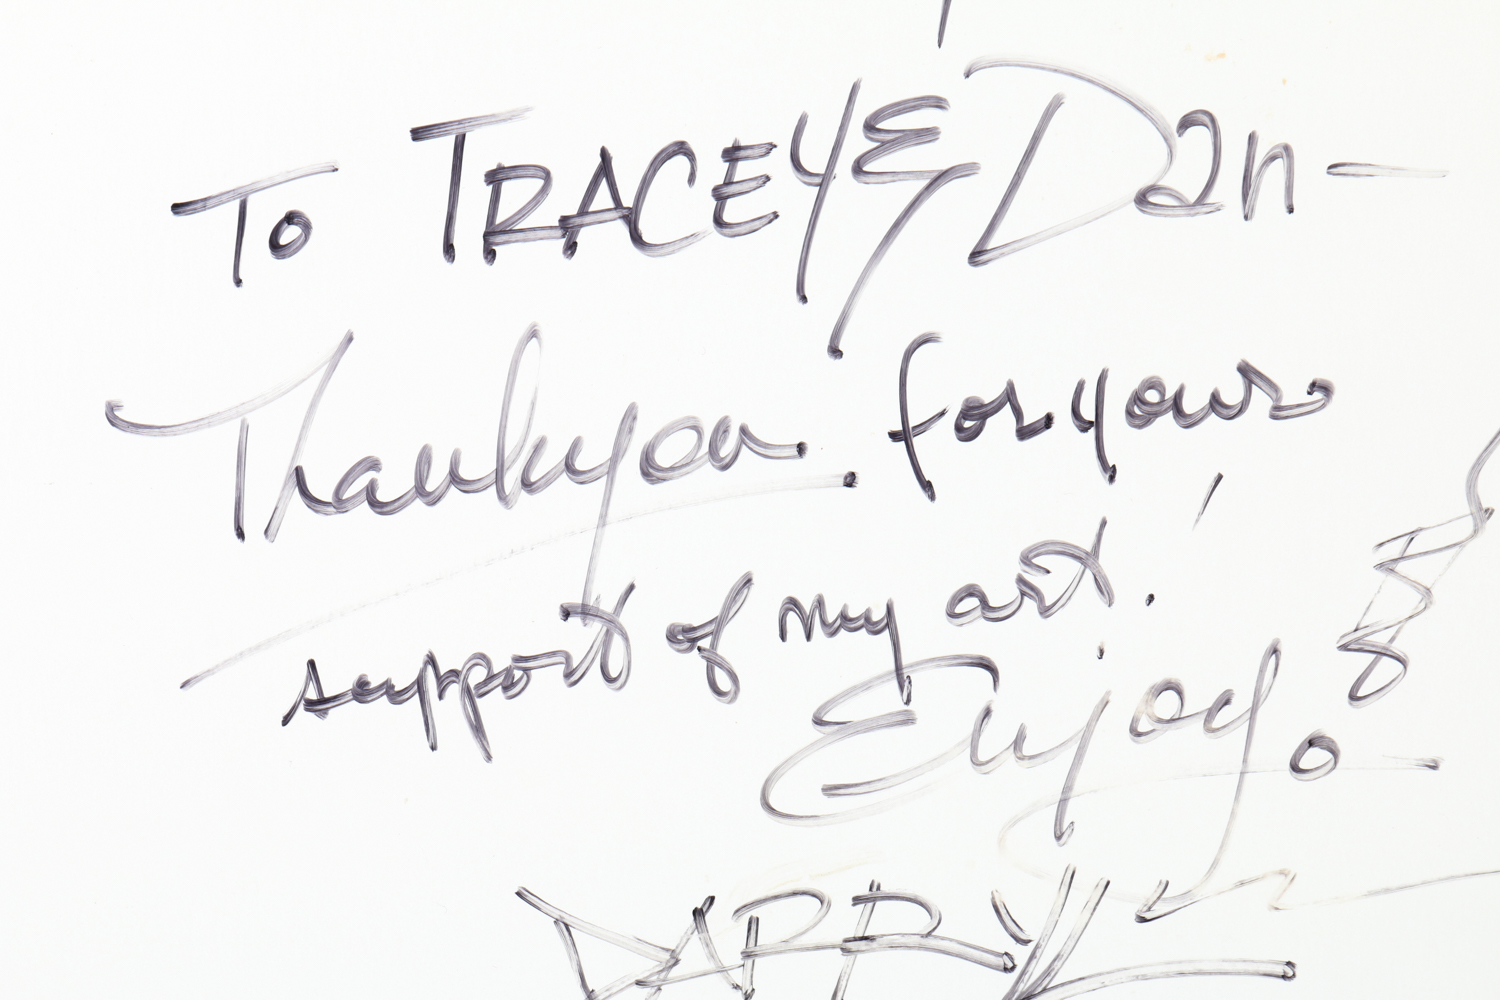 To TRACEY & Dan—
Thank you for your
support of my art!
Enjoy